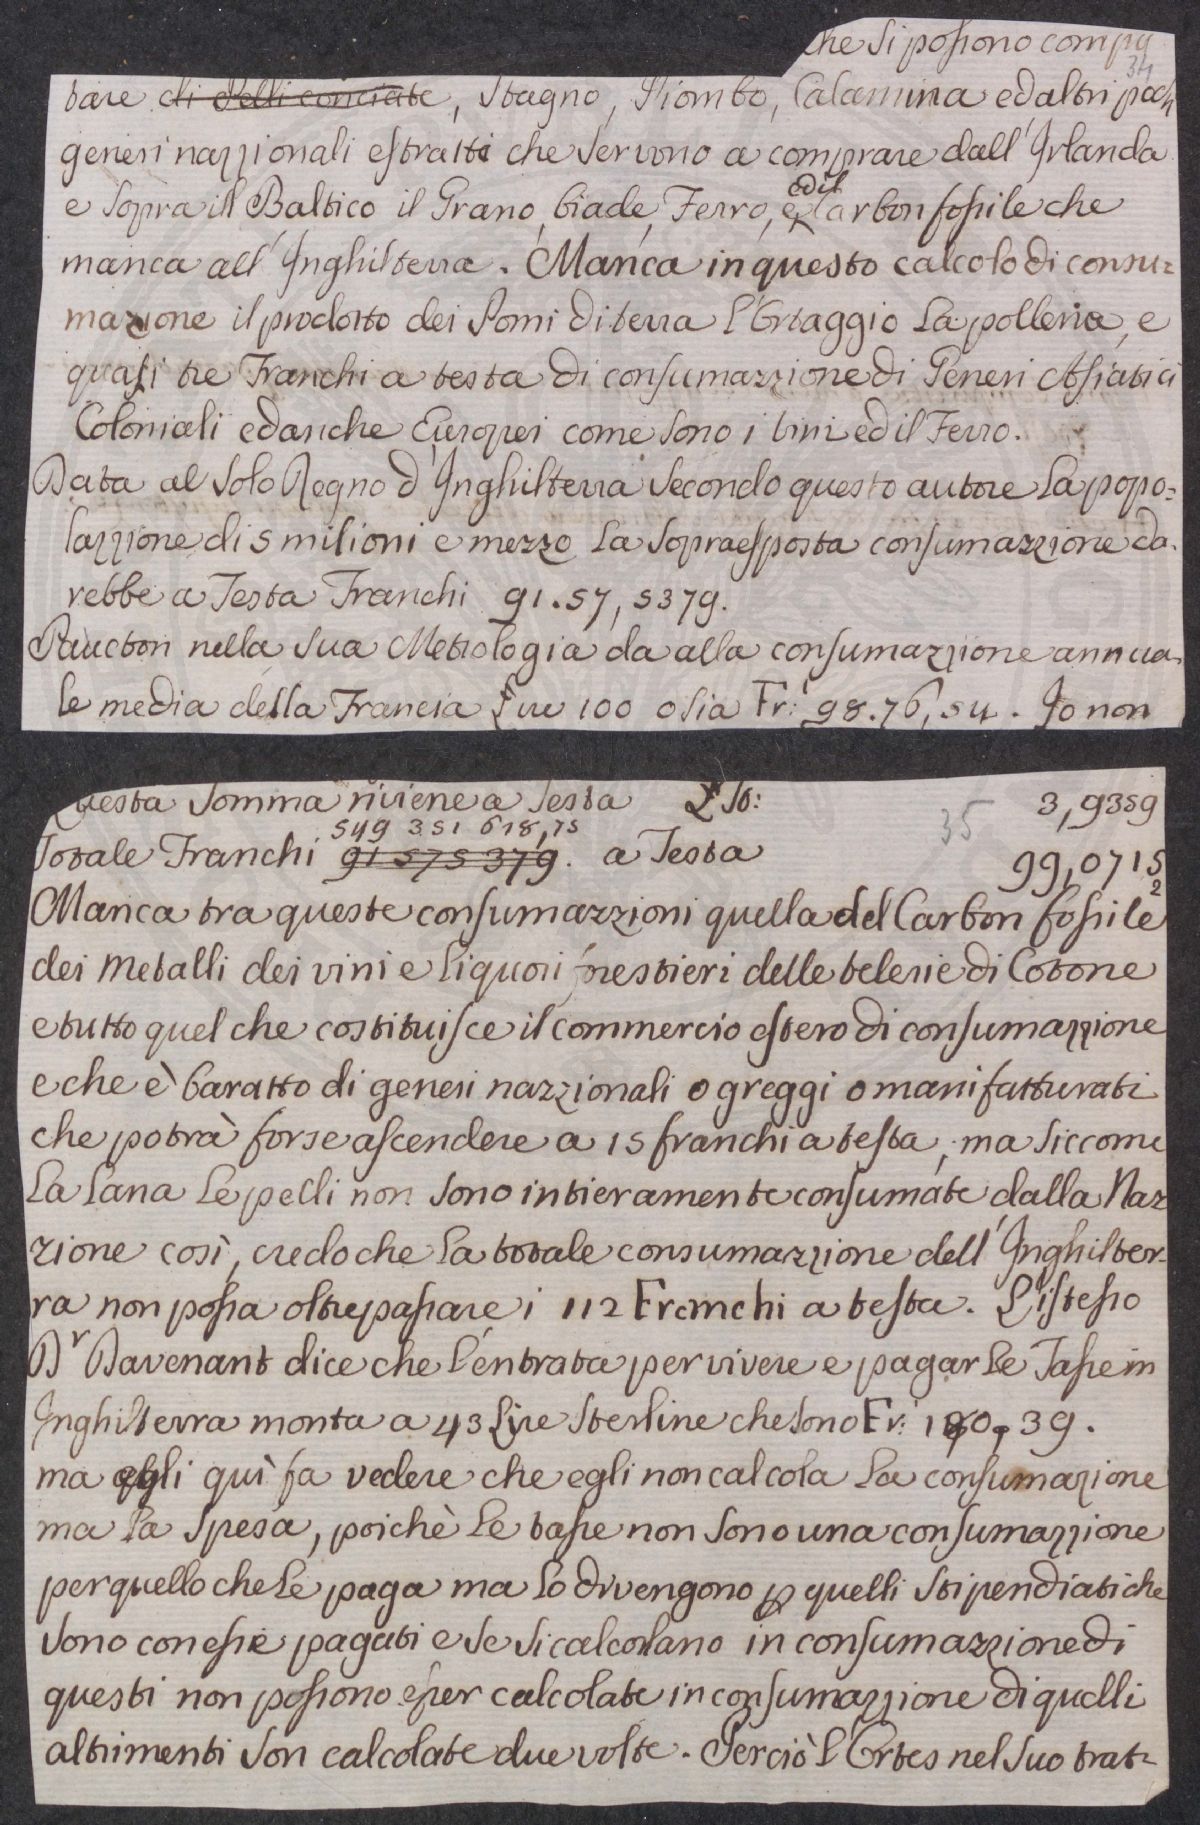 che si possono compu
34
tare di Pelli conciate, Stagno, Piombo, Calamina ed altri pochi
generi nazzionali estratti che servono a comprare dall' Irlanda
e sopra il Baltico il Grano, biade, Ferro, ed il Carbon fossile che
manca all' Inghilterra. Manca in questo calcolo di consu=
mazione il prodotto dei Pomi di terra l'Ortaggio la polleria, e
quasi tre Franchi a testa di consumazzione di Generi Asiatici
Coloniali ed anche Europei come sono i vini ed il Ferro.
Data al solo Regno d'Inghilterra secondo questo autore la popo=
lazzione di 5 milioni e mezzo la sopraesposta consumazzione da=
rebbe a Testa Franchi 91.57,5379.
Paucton nella sua Metrologia da alla consumazzione annua=
le media della Francia Lire 100 o sia Fr: 98.76,54. Io non
Questa somma riviene a Testa L St: 3,9359
35
549 351 618,75
Totale Franchi 91 575 379. a Testa 99,0715
2
Manca tra queste consumazzioni quella del Carbon fossile
dei metalli dei vini e liquori forestieri delle telerie di Cotone
e tutto quel che costituisce il commercio estero di consumazzione
e che è baratto di generi nazzionali o greggi o manifatturati
che potrà forse ascendere a 15 franchi a testa, ma siccome
la lana le pelli non sono intieramente consumate dalla Naz
zione così, credo che la totale consumazzione dell' Inghilter=
ra non possa oltrepassare i 112 Franchi a testa. L'istesso
Dr Davenant dice che l'entrata per vivere e pagar le Tasse in
Inghilterra monta a 43 Lire Sterline che sono Fr: 180,39.
ma egli quì fa vedere che egli non calcola la consumazione
ma la spesa, poichè le tasse non sono una consumazzione
per quello che le paga ma lo divengono p quelli stipendiati che
sono con esse pagati e se si calcolano in consumazzione di
questi non possono esser calcolate in consumazzione di quelli
altrimenti son calcolate due volte. Perciò l'Ortes nel suo trat=